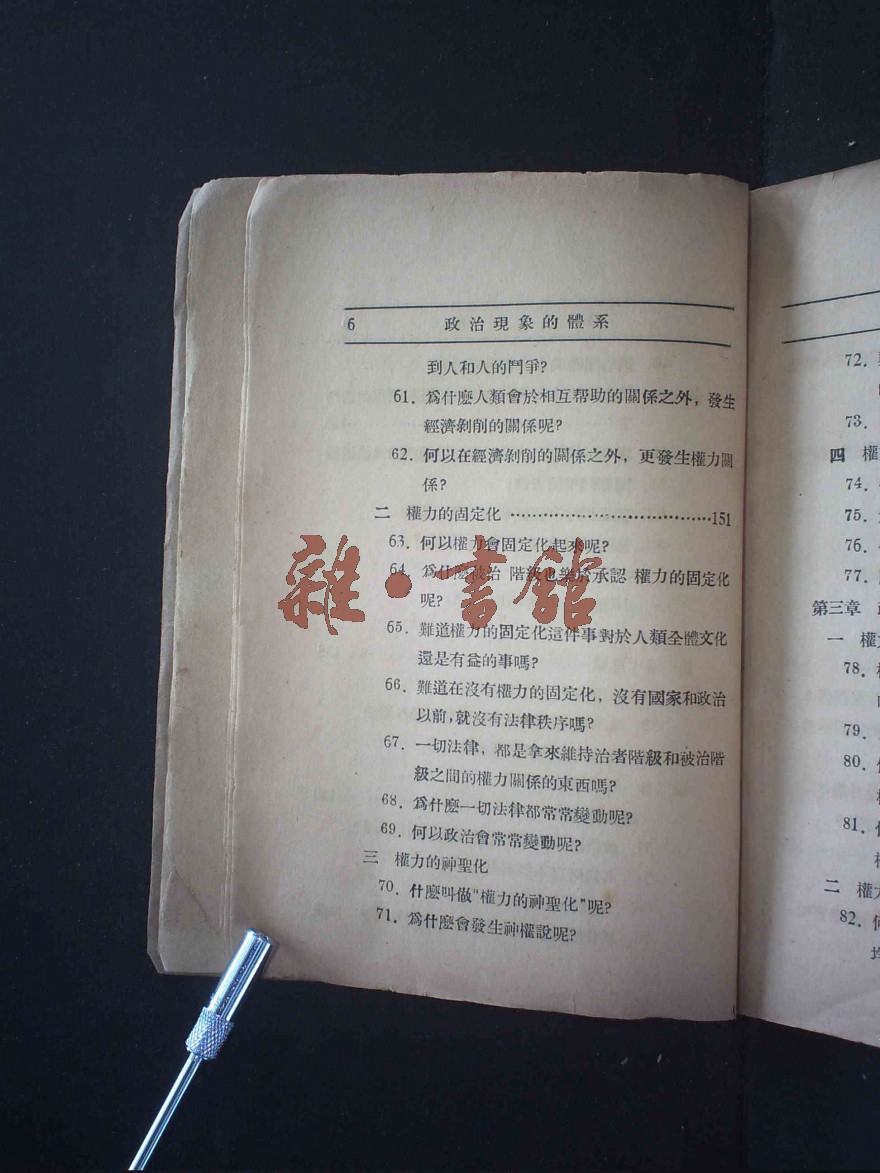 6 政治現象的體系
到人和人的鬥爭?
61. 爲什麼人類會於相互帮助的關係之外，發生
經濟剝削的關係呢?
62. 何以在經濟剝削的關係之外，更發生權力關
係?
二 權力的固定化 ……………………………151
63. 何以權力會固定化起來呢?
64. 爲什麼被治 階級也樂於承認 權力的固定化
呢?
65. 難道權力的固定化這件事對於人類全體文化
還是有益的事嗎?
66. 難道在沒有權力的固定化，沒有國家和政治
以前，就沒有法律秩序嗎?
67. 一切法律，都是拿來維持治者階級和被治階
級之間的權力關係的東西嗎?
68. 爲什麼一切法律都常常變動呢?
69. 何以政治會常常變動呢?
三 權力的神聖化
70. 什麼叫做"權力的神聖化"呢?
71. 爲什麼會發生神權說呢?
雜·書館
72.
73.
四 權
74.
75.
76.
77.
第三章
一 權
78.
79.
80.
81.
二 權
82. 何
均